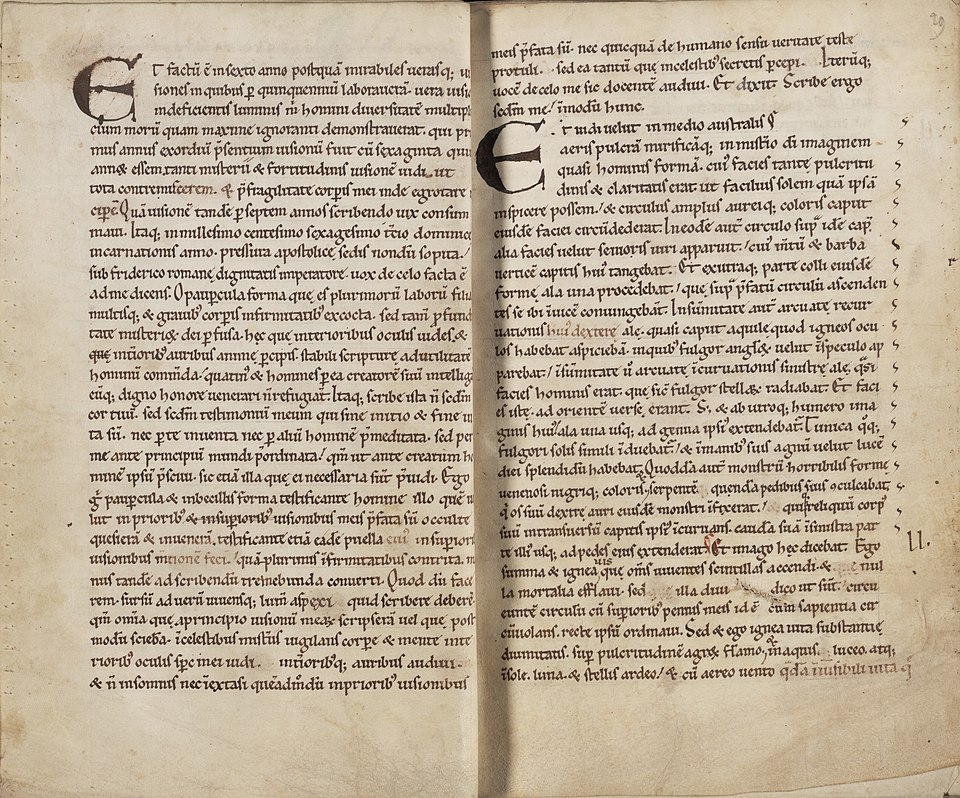 Et factū ē in sexto anno postquā mirabiles ueras q;
siones in quibus ꝑ quinquenniū laboraueta. uera uisio
indeficientis luminis m̄ homini diuersitatē multipl
cium morū quam maxime ignoranti demonstrauerat. qui pri
mus annus exordiū p̄sentium uisionū fuit cū sexaginta qui
annoꝝ essem. tanti misterii & fortitudinis uisionē uidi. ut
tota contremiscerem. & p̄ fragilitate corpis mei inde egrotare
ciperē. Quā uisionē tandē ꝑ septem annos scribendo uix consum
maui. Itaq; in millesimo centesimo sexagesimo t̄cio dominice
incarnationis anno. pressura apostolicę sedis nondū sopita.
sub friderico romanę dignitatis imperatore. uox de celo facta ē
ad me dicens. O paupercula forma que es plurimorū laborū filia
multisq; & grauibꝰ corpis infirmitatibꝰ excocta. sed tam̄ ꝓfundi
tate misterioꝝ dei ꝑfusa. hęc quę interioribus oculis uides. &
que int̄ioribꝰ auribus anime ꝑcipis stabili scripture ad utilitatē
hominū cōm̄da / quatinꝰ & homines ꝑ ea creatorē suū intelliga
eūq; digno honore uenerari n̄ refugiāt. Itaq; scribe ista n̄ scdm̄
cor tuū. sed scdm̄ testimoniū meum qui sine initio & fine ui
ta sū. nec ꝑ te inuenta nec ꝑ aliū hominē p̄meditata. sed per
me ante principiū mundi p̄ordinata / qm̄ ut ante creatum ho
minē ipsū p̄sciui. sic etiā illa que ei necessaria sūt p̄uidi. Ego
g̊ paupercula & imbecillis forma testificante homine illo quē u
lut in prioribꝰ & in supioribꝰ uisionibus meis p̄fata sū occulte
quesierā & inuenerā. testificante etiā eadē puella cuiꝰ in superiori
uisionibus m̄tionē feci / quā plurimis īfirmitatibus contrita. m
nus tandē ad scribendū tremebunda conuerti. Quod dū face
rem. sursū ad uerū uiuensq; lum̄ aspexi quid scribere deberē.
qm̄ om̄ia que a principio uisionū meaꝝ scripserā uel que post
modū scieba. ī celestibus mist̄iis uigilans corpe & mente inte
rioribꝰ oculis spc̄ mei uidi. int̄ioribusq; auribus audiui.
& n̄ in somnis nec ī extasi quēadm̄dū in prioribꝰ uisionibus
meis p̄fata sū. nec quicquā de humano sensu ueritate teste
protuli. sed ea tantū que in celestibꝰ secretis ꝑcepi. Iterūq;
uocē de celo me sic docentē audiui. Et dixit. Scribe ergo
scdm̄ me / ī modū hunc.
Et uidi uelut in medio australis
aeris pulcrā mirificāq; in mist̄io dī imaginem
quasi hominis formā. cuiꝰ facies tantę pulcritu
dinis & claritatis erat ut facilius solem quā ipsā
inspicere possem / & circulus amplus aureiq; coloris caput
eiusdē faciei circūdederat. In eodē aut̄ circulo supͣ idē capͥ
alia facies uelut senioris uiri apparuit. cuiꝰ m̄tū & barba
uerticē capitis huiꝰ tangebat. Et ex utraq; parte colli eiusdē
formę ala una procedebat / quę supͣ p̄fatū circulū ascenden
tes se ibi īuicē coniungebāt. In sūmitate aut̄ arcuatę recur
uationis huiꝰ dextere alę. quasi caput aquile quod igneos ocu
los habebat aspiciebā. in quibꝰ fulgor angloꝝ uelut ī speculo ap
parebat / ī sūmitate ū arcuatę īcuruationis sinistrę alę. qͣsi
facies hominis erat. quę sic̄ fulgor stellaꝝ radiabat. Et faci
es istę. ad orientē uersę erant. S; & ab utroq; humero ima
ginis huiꝰ ala una usq; ad genua ipsiꝰ extendebat. Tunica qͦq;
fulgori solis simili īduebat / & ī manibꝰ suis agnū uelut lucē
diei splendidū habebat. Quoddā aut̄ monstrū horribilis formę
uenenosi nigriq; coloris & serpentē quendā pedibus suis cōculcabat.
qͥ os suū dextrę auri eiusdē monstri īfixerat. & reliquū corpꝰ
suū in transuersū capitis ipsiꝰ īcuruans. caudā suā ī sinistra par
te illiꝰ usq; ad pedes eiꝰ extenderat. Et imago hęc dicebat. Ego
summa & ignea uis que om̄s uiuentes scintillas accendi. & nul
la mortalia efflaui. sed illa diui dico ut sūt. circu
euntē circulū cū superioribꝰ pennis meis id ē cum sapientia cir
cūuolans. recte ipsū ordinaui. Sed & ego ignea uita substantię
diuinitatis. supͣ pulcritudinē agroꝝ flamo. & in aquis luceo. atq;
ī sole. luna. & stellis ardeo / & cū aereo uento qͣdā īuisibili uita qͥ
29
II.